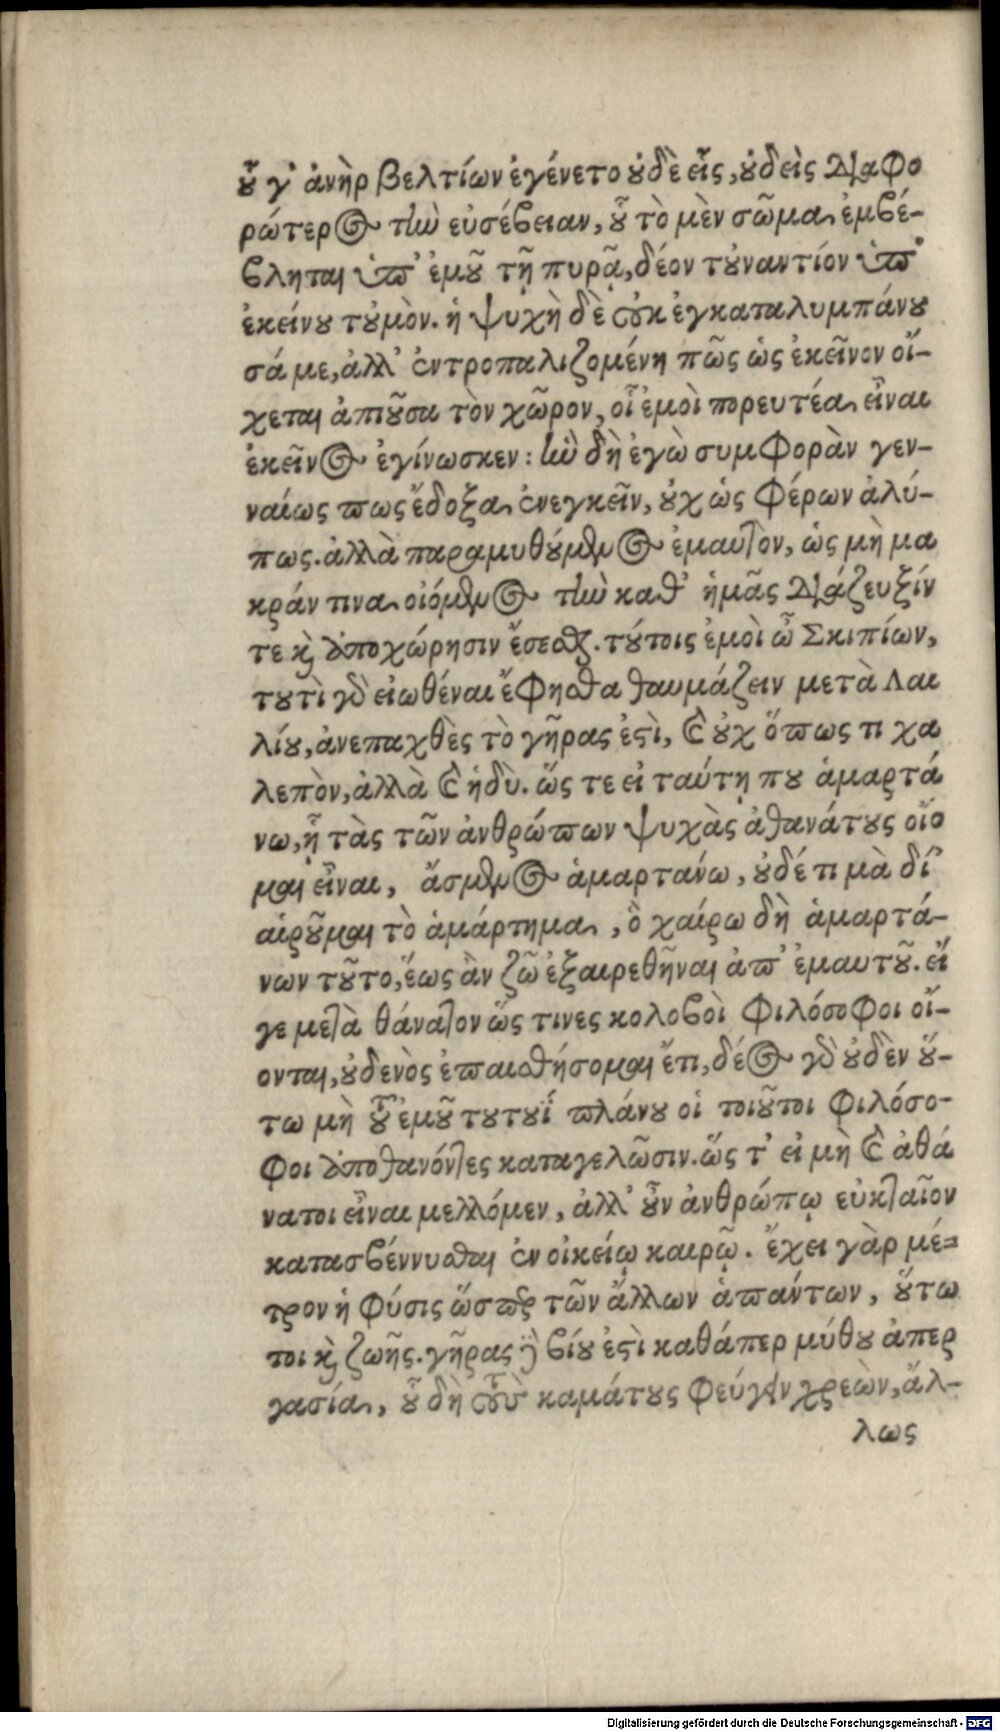 οὗ γ' ἀνὴρ βελτίων ἐγένετο οὐδὲ εἷς, οὐδεὶς διαφο
ρώτερος τὴν εὐσέβειαν, οὗ τὸ μὲν σῶμα ἐμβέ-
βληται ὑπ' ἐμοῦ τῇ πυρᾷ, δέον τοὐναντίον ὑπ'
ἐκείνου τοὐμόν. ἡ ψυχὴ δὲ οὐκ ἐγκαταλυμπάνου
σά με, ἀλλ' ἐντροπαλιζομένη πῶς ὡς ἐκεῖνον οἴ-
χεται ἀπιοῦσα τὸν χῶρον, οἷ ἐμοὶ πορευτέα εἶναι
ἐκεῖνος ἐγίνωσκεν: ἣν δὴ ἐγὼ συμφορὰν γεν-
ναίως πως ἔδοξα ἐνεγκεῖν, οὐχ ὡς φέρων ἀλύ-
πως. ἀλλὰ παραμυθούμενος ἐμαυτον, ὡς μὴ μα
κράν τινα οἰόμενος τὴν καθ' ἡμᾶς διάζευξίν
τε καὶ ἀποχώρησιν ἔσεσθαι. τούτοις ἐμοὶ ὦ Σκιπίων,
τουτὶ γὰρ εἰωθέναι ἔφησθα θαυμάζειν μετὰ Λαι
λίου, ἀνεπαχθὲς τὸ γῆρας ἐστὶ, καὶ οὐχ ὅπως τι χα
λεπὸν, ἀλλὰ καὶ ἡδὺ. ὥς τε εἰ ταύτῃ που ἁμαρτά
νω, ᾗ τὰς τῶν ἀνθρώπων ψυχὰς ἀθανάτους οἴο
μαι εἶναι, ἄσμενος ἁμαρτάνω, οὐδέ τι μὰ δί'
αἱροῦμαι τὸ ἁμάρτημα, ὃ χαίρω δὴ ἁμαρτά-
νων τοῦτο, ἕως ἂν ζῶ ἐξαιρεθῆναι ἀπ' ἐμαυτοῦ. εἴ
γε μετὰ θάνατον ὥς τινες κολοβοὶ φιλόσοφοι οἴ-
ονται, οὐδενὸς ἐπαισθήσομαι ἔτι, δέος γὰρ οὐδὲν οὕ-
τω μὴ τοῦ ἐμοῦ τουτουῒ πλάνου οἱ τοιοῦτοι φιλόσο-
φοι ἀποθανόντες καταγελῶσιν. ὥς τ' εἰ μὴ καὶ ἀθά
νατοι εἶναι μελλόμεν, ἀλλ' οὖν ἀνθρώπῳ εὐκταῖον
κατασβέννυσθαι ἐν οἰκείῳ καιρῷ. ἔχει γὰρ μέ-
τρον ἡ φύσις ὥσπερ τῶν ἄλλων ἁπάντων, οὕτω
τοι καὶ ζωῆς. γῆρας δὲ βίου ἐστὶ καθάπερ μύθου ἀπερ
γασία, οὗ δὴ τοὺς καμάτους φεύγειν χρεὼν, ἄλ-
λως
Digitalisierung gefördert durch die Deutsche Forschungsgemeinschaft - DFG